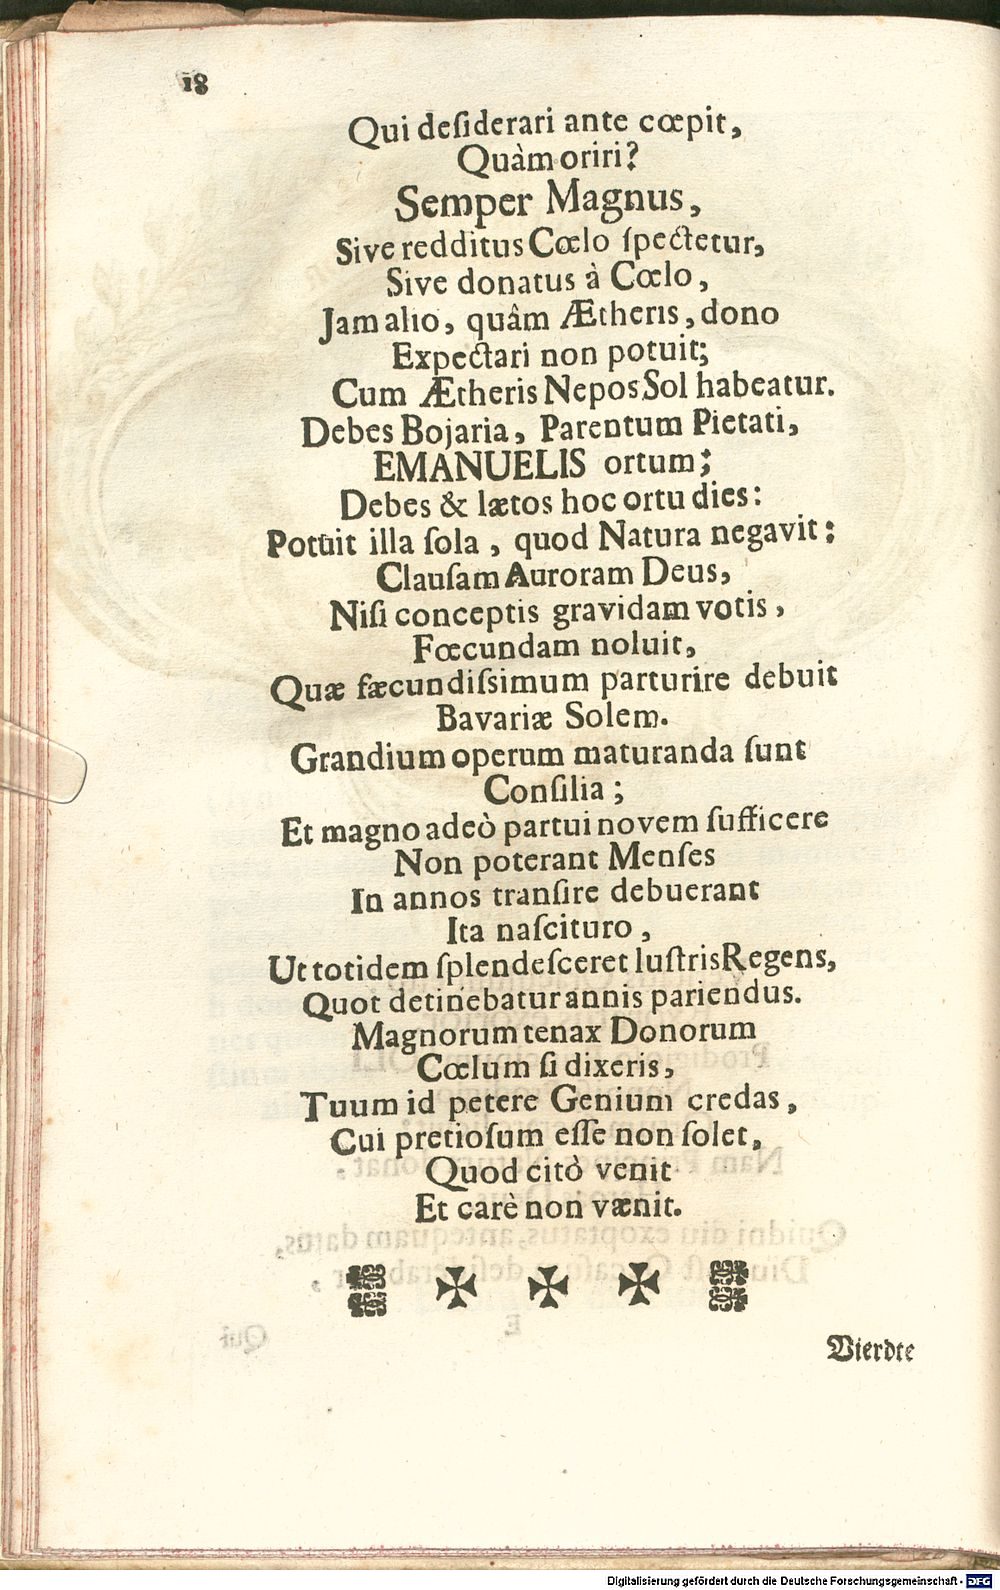 18
Qui deſiderari ante cœpit,
Quàm oriri?
Semper Magnus,
Sive redditus Cœlo ſpectetur,
Sive donatus à Cœlo,
Jam alio, quâm Ætheris, dono
Expectari non potuit;
Cum Ætheris Nepos Sol habeatur.
Debes Bojaria, Parentum Pietati,
EMANUELIS ortum;
Debes & lætos hoc ortu dies:
Potuit illa ſola, quod Natura negavit:
Clauſam Auroram Deus,
Niſi conceptis gravidam votis,
Fœcundam noluit,
Quæ fæcundiſsimum parturire debuit
Bavariæ Solem.
Grandium operum maturanda ſunt
Conſilia;
Et magno adeò partui novem ſufficere
Non poterant Menſes
In annos tranſire debuerant
Ita naſcituro,
Ut totidem ſplendeſceret luſtris Regens,
Quot detinebatur annis pariendus.
Magnorum tenax Donorum
Cœlum ſi dixeris,
Tuum id petere Genium credas,
Cui pretioſum eſſe non ſolet,
Quod citò venit
Et carè non vænit.
Vierdte
Digitalisierung gefördert durch die Deutsche Forschungsgemeinschaft - DFG